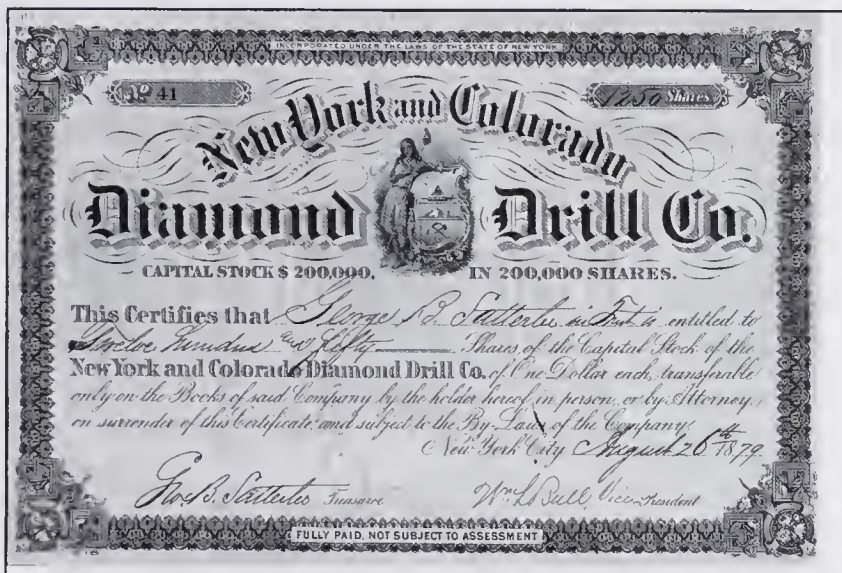 INCORPORATED UNDER THE LAWS OF THE STATE OF NEW YORK
No 41
1250 Shares
New York and Colorado
Diamond Drill Co.
CAPITAL STOCK $ 200,000. IN 200,000 SHARES.
This Certifies that George B Satterlee in Trust is entitled to
Twelve hundred and fifty Shares of the Capital Stock of the
New York and Colorado Diamond Drill Co. of One Dollar each, transferable
only on the Books of said Company by the holder hereof in person, or by Attorney,
on surrender of this Certificate and subject to the By-Laws of the Company.
New York City August 26th 1879.
Geo. B. Satterlee Treasurer Wm L Bull Vice President
FULLY PAID, NOT SUBJECT TO ASSESSMENT